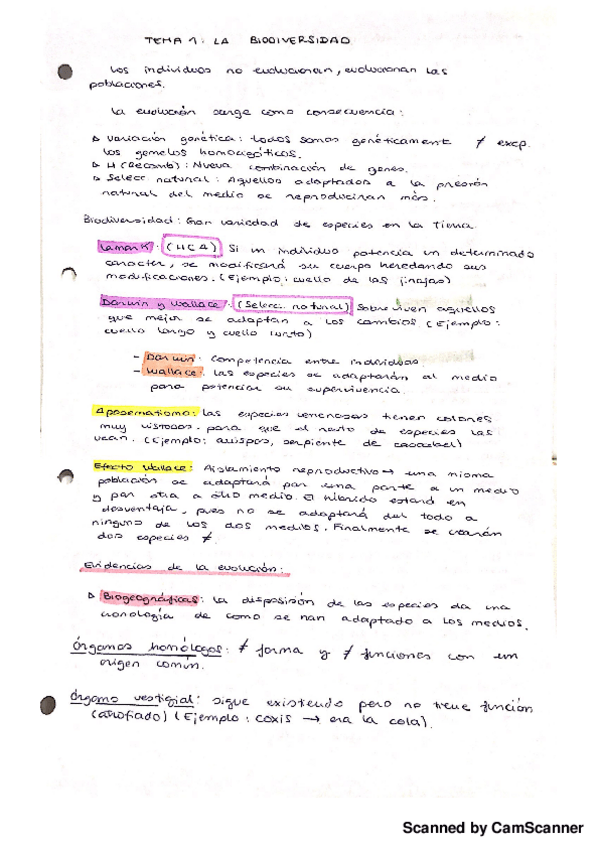 TEMA 1: LA BIODIVERSIDAD
Los individuos no evolucionan, evolucionan las
poblaciones.
La evolución surge como consecuencia:
▷ Variación genética: todos somos genéticamente ≠ excp.
los gemelos homocigóticos.
▷ H (Recomb): Nueva combinación de genes.
▷ Selecc. natural: Aquellos adaptados a la presión
natural del medio se reproducirán más.
Biodiversidad: Gran variedad de especies en la Tierra.
Lamark: (HCA) Si un individuo potencia un determinado
caracter, se modificará su cuerpo heredando sus
modificaciones. (Ejemplo: cuello de las jirafas)
Darwin y Wallace: (Selecc. natural) Sobreviven aquellos
que mejor se adaptan a los cambios (Ejemplo:
cuello largo y cuello corto)
- Darwin: competencia entre individuos.
- Wallace: las especies se adaptarán al medio
para potenciar su supervivencia.
Aposematismo: las especies venenosas tienen colores
muy vistosos para que el resto de especies las
vean. (Ejemplo: avispas, serpiente de cascabel)
Efecto Wallace: Aislamiento reproductivo → una misma
población se adaptará por una parte a un medio
y por otra a otro medio. El híbrido estará en
desventaja, pues no se adaptará del todo a
ninguno de los dos medios. Finalmente se crearán
dos especies ≠.
Evidencias de la evolución:
▷ Biogeográficas: la disposición de las especies da una
cronología de como se han adaptado a los medios.
Órganos homólogos: ≠ forma y ≠ funciones con un
origen común.
Órgano vestigial: sigue existendo pero no tiene función
(atrofiado) (Ejemplo: coxis → era la cola).
Scanned by CamScanner